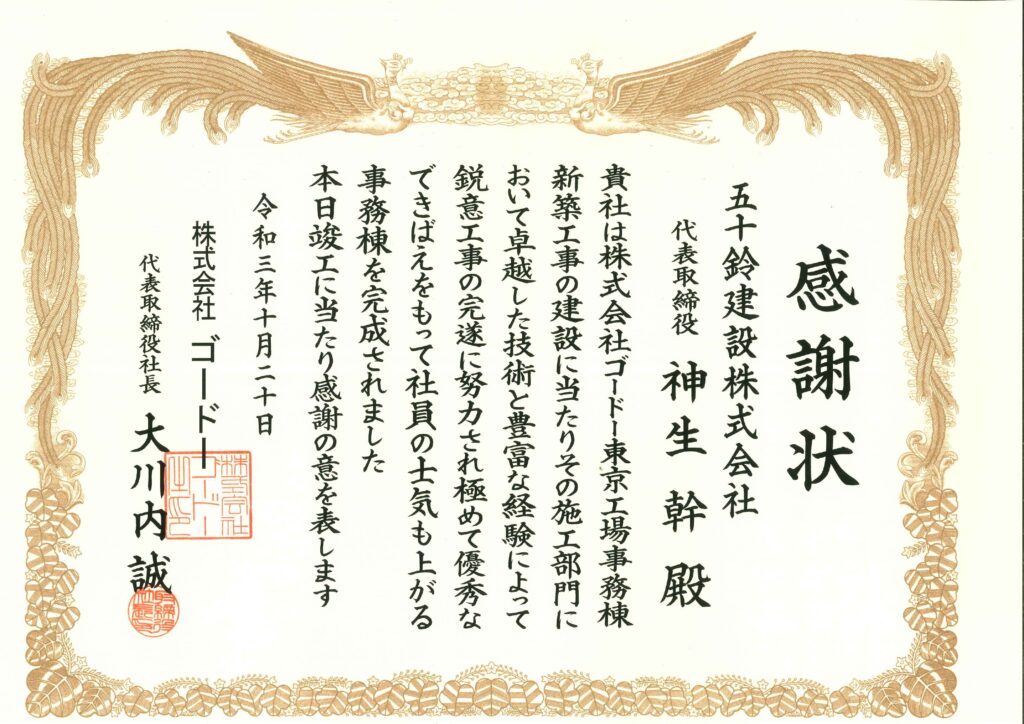 感謝状
五十鈴建設株式会社
代表取締役 神生 幹 殿
貴社は株式会社ゴードー東京工場事務棟
新築工事の建設に当たりその施工部門に
おいて卓越した技術と豊富な経験によって
鋭意工事の完遂に努力され極めて優秀な
できばえをもって社員の士気も上がる
事務棟を完成されました
本日竣工に当たり感謝の意を表します
令和三年十月二十日
株式会社 ゴードー
代表取締役社長 大川内 誠
株式会社
ゴードー
之印